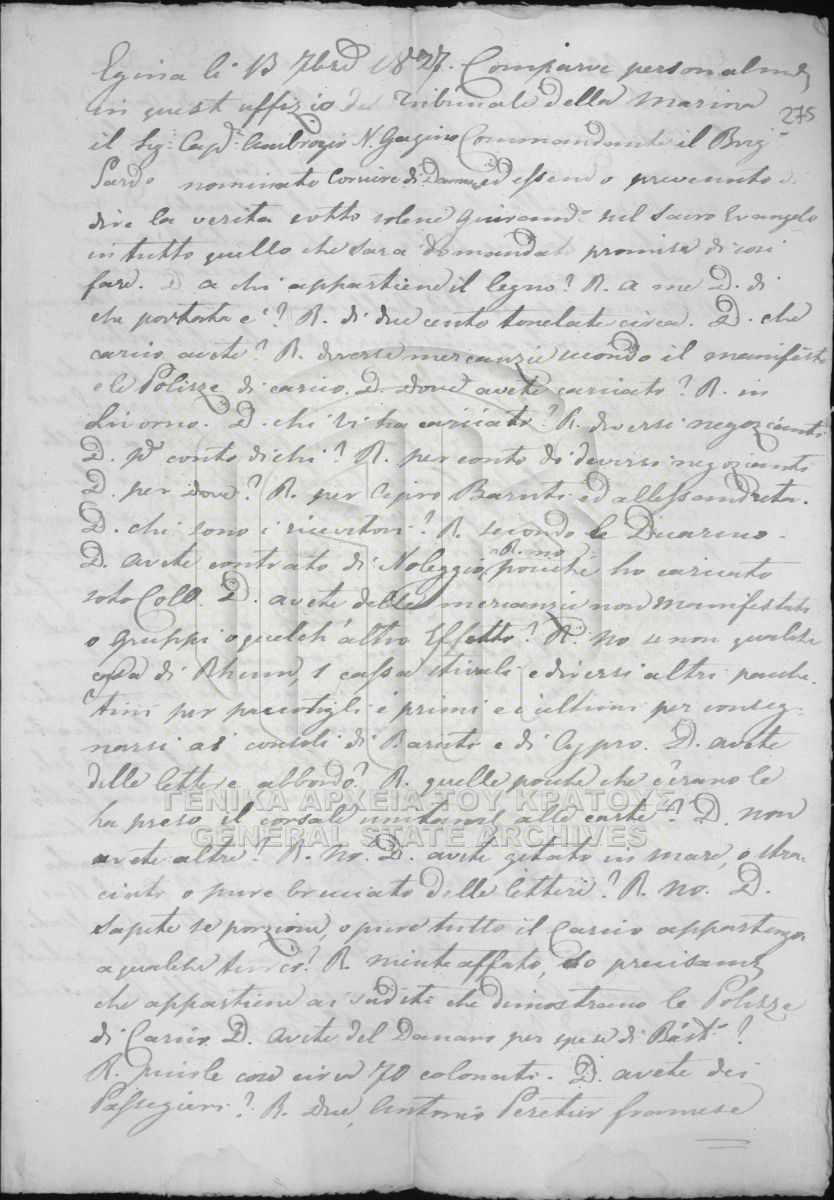 Egina li 13 7bre 1827. Comparve personalme
in quest uffizio del Tribunale della Marina
275
il Sig. Capn. Ambrogio N. Gagino Commandante il Brig.
Sardo nominato Corriere di ed essendo prevenuto di
dire la verita sotto solene Giuramdo nel Sacro Evangelo
in tutto quello che sara domandato promise di cosi
fare. D a chi appartiene il legno? R. a me D. di
che portata e'? R. di due cento tonelate circa. D. che
carico avete? R. diverse mercanzie secondo il manifesto
e le Polizze di carico. D. dove avete caricato? R. in
Livorno. D. chi vi ha caricato? R. diversi negozianti
D. pr conto di chi? R. per conto di diversi negozianti
D. per dove? R. per Cipro Baruti ed allessandreta.
D. chi sono i ricevitori? R. secondo le Dicarico.
D. avete contrato di Noleggio, R. no poiche ho caricato
soto Coll. D. avete delle mercanzie non manifestate
o gruppi o qualch' altro Effetto? R. No se non qualche
cosa di Rhum, 1 cassa stivali e diversi altri pacche-
tini per i primi e i ultimi per conseg-
narsi ai consoli di Baruti e di Cypro. D. avete
delle lettere abbordo? R. quelle poche che c'erano le
ha preso il corsale unitamte alle carte? D. non
avete altre? R. No. D. avete gitato in mare, o stra-
ciato o pure bruciato delle lettere? R. No. D.
Sapete se porzione, o pure tutto il Carico appartenga
a qualche turco? R. niente affato, so precisamte
che appartiene ai suditi che dimostrano le Polizze
di Carico. D. avete del Danaro per spese di Bast.o?
R. Picole cose circa 70 colonati. D. avete dei
Passegieri? R. Due, Antonio francese
ΓΕΝΙΚΑ ΑΡΧΕΙΑ ΤΟΥ ΚΡΑΤΟΥΣ
GENERAL STATE ARCHIVES